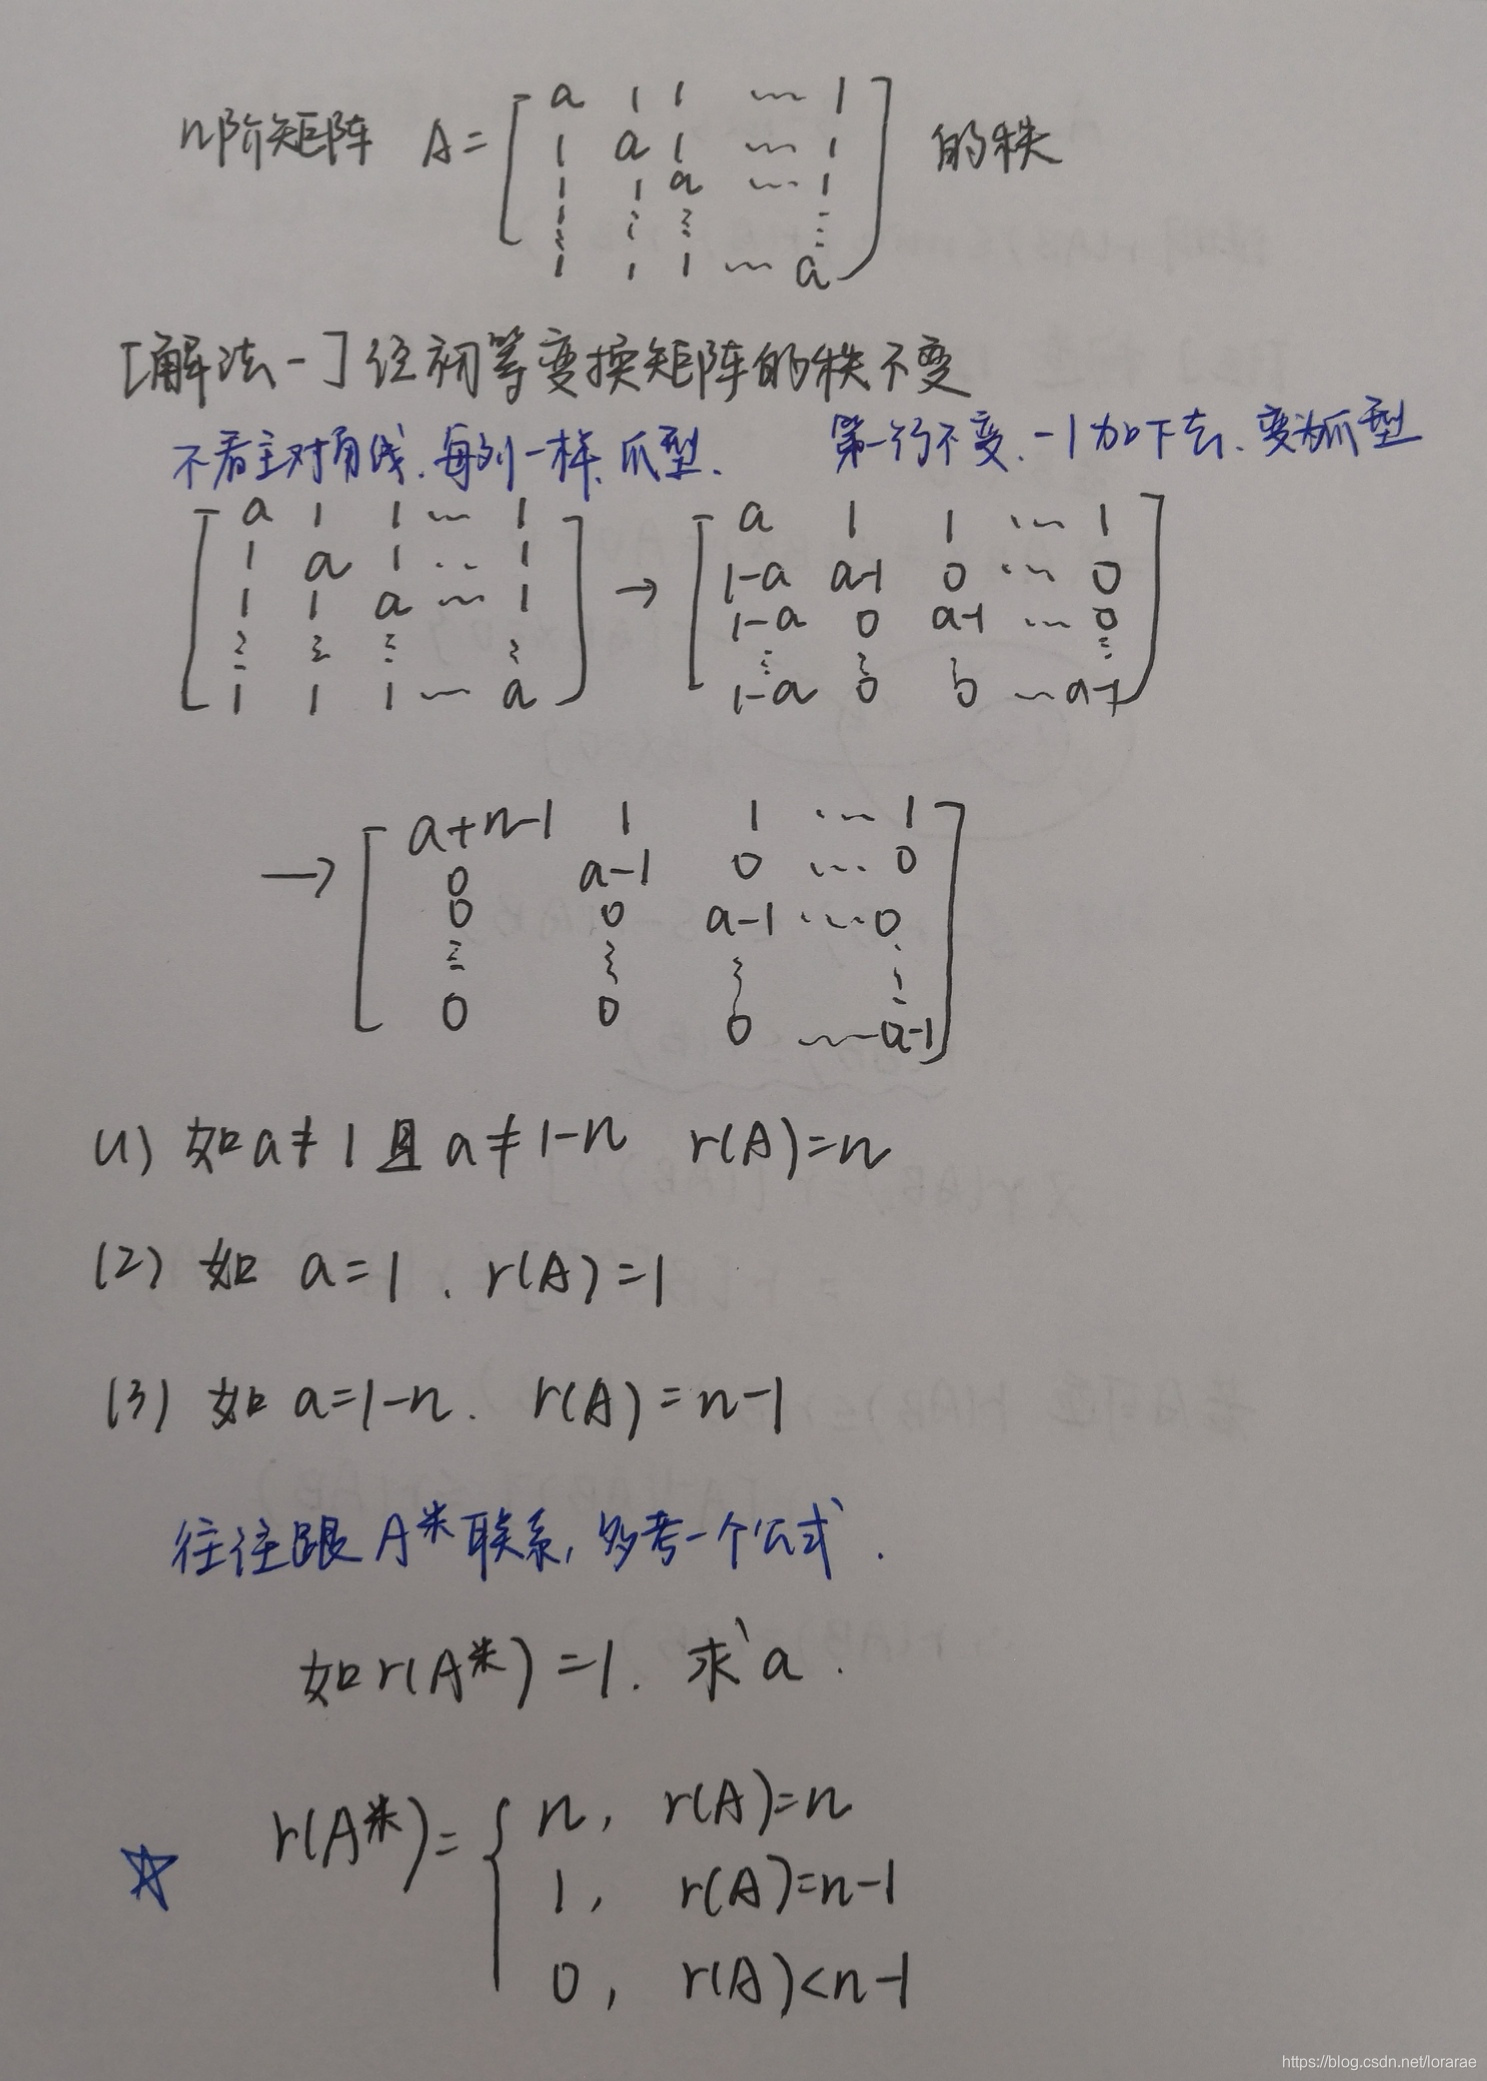 n阶矩阵 A= [ a 1 1 … 1 ] 的秩
1 a 1 … 1
1 1 a … 1
⋮ ⋮ ⋮ ⋮
1 1 1 … a
[解法一] 经初等变换矩阵的秩不变
不看主对角线,每列一样,爪型. 第一行不变,-1加下去,变为爪型
[ a 1 1 … 1 ] → [ a 1 1 … 1 ]
1 a 1 … 1 1-a a-1 0 … 0
1 1 a … 1 1-a 0 a-1 … 0
⋮ ⋮ ⋮ ⋮ ⋮ ⋮ ⋮
1 1 1 … a 1-a 0 0 … a-1
→ [ a+n-1 1 1 … 1 ]
0 a-1 0 … 0
0 0 a-1 … 0
⋮ ⋮ ⋮ ⋮
0 0 0 … a-1
(1) 如a≠1且a≠1-n r(A)=n
(2) 如 a=1, r(A)=1
(3) 如 a=1-n. r(A)=n-1
往往跟A*联系,多考一个公式.
如r(A*)=1. 求a.
☆ r(A*)= { n, r(A)=n
1, r(A)=n-1
0, r(A)<n-1
https://blog.csdn.net/lorarae